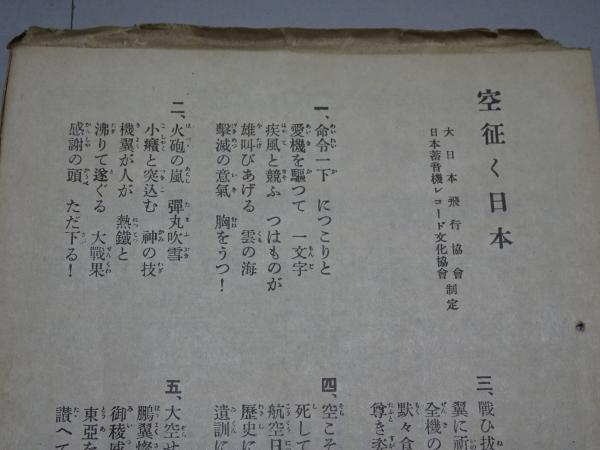 空征く日本
大日本飛行協會
日本蓄音機レコード文化協會 制定
一、命令一下 につこりと
愛機を驅つて 一文字
疾風と競ふ つはものが
雄叫びあげる 雲の海
擊滅の意氣 胸をうつ!
二、火砲の嵐 彈丸吹雪
小癪と突込む 神の技
機翼が人が 熱鐵と
沸りて遂ぐる 大戰果
感謝の頭 ただ下る!
三、戰ひ拔
翼に祈
全機の
默々食
尊き
四、空こそ
死して
航空日
歷史に
遺訓に
五、大空せ
鵬翼燦
御稜威
東亞を
讃へて